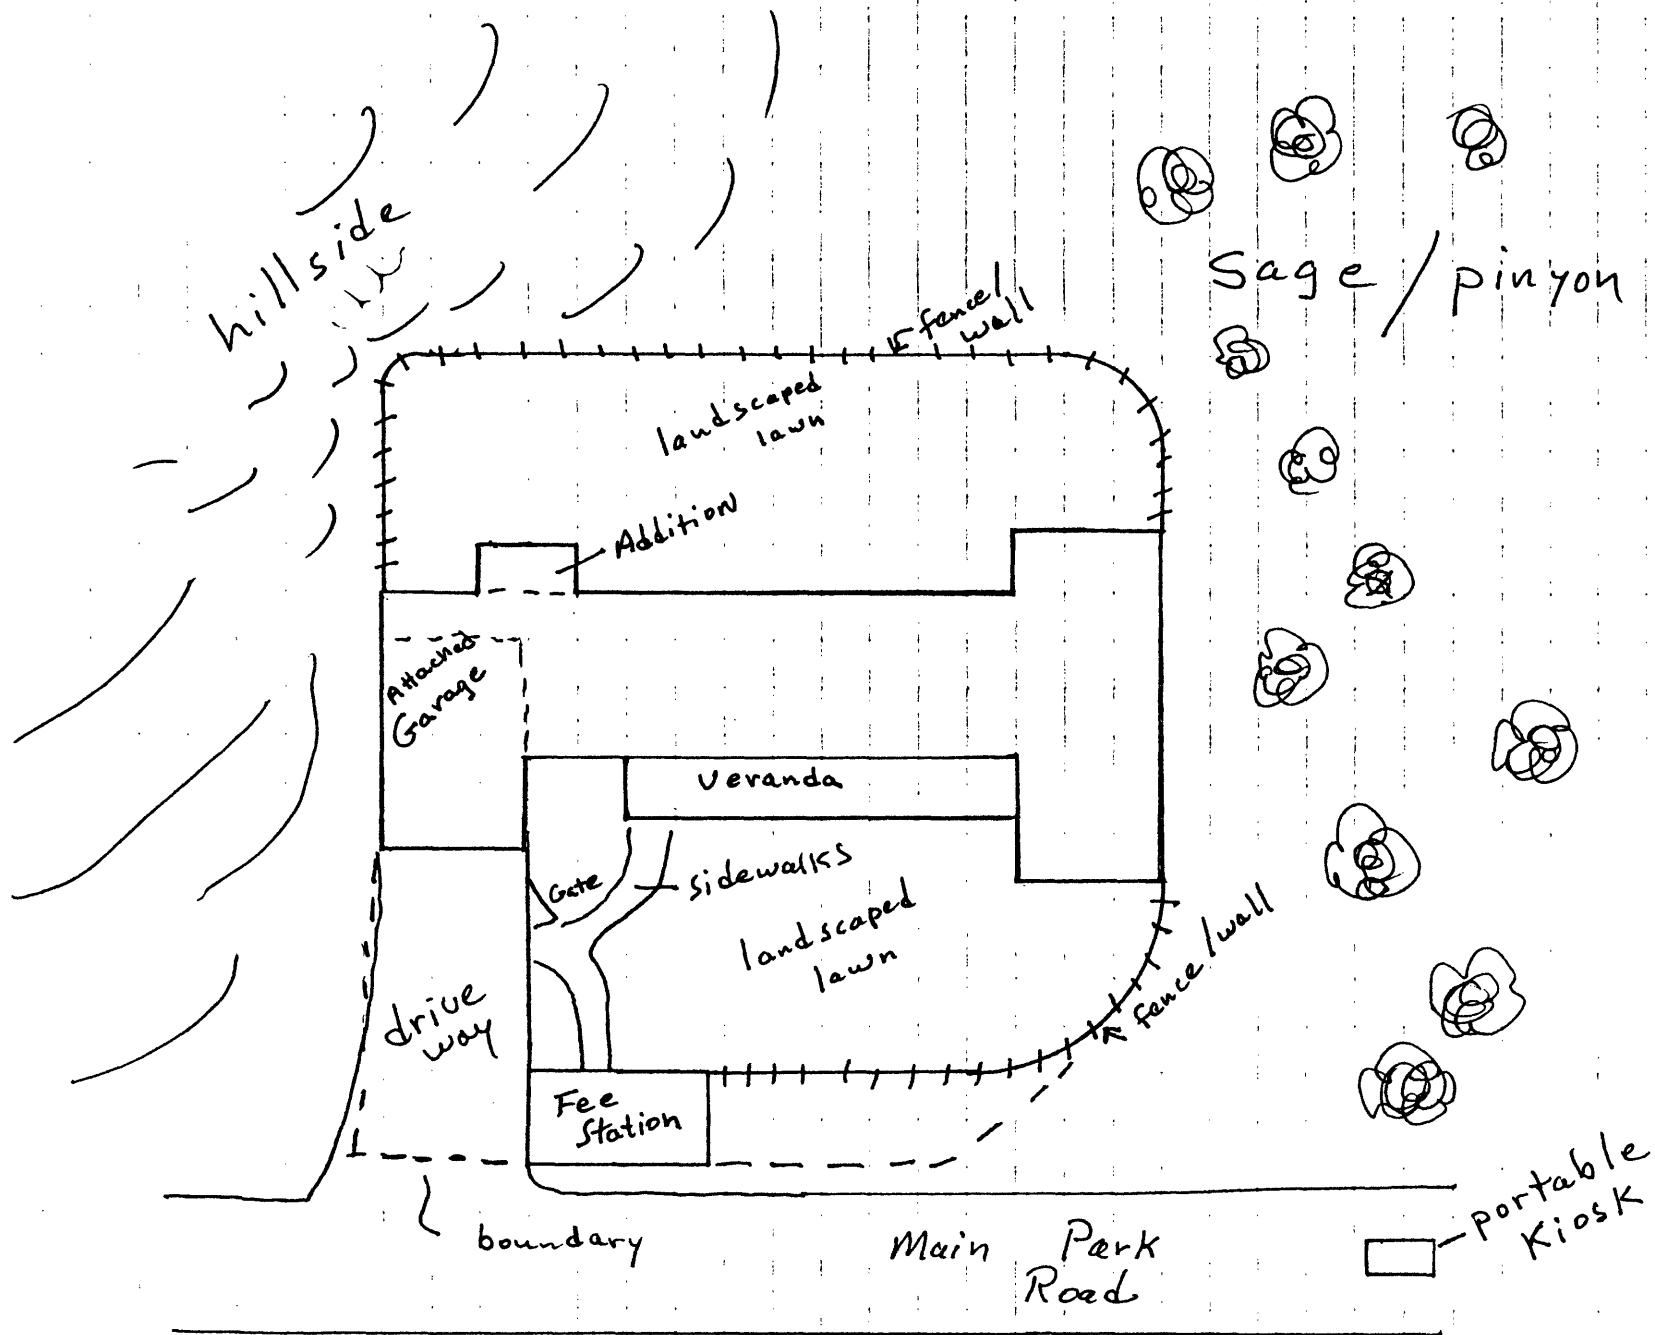 hillside
Sage / pinyon
fence/
wall
landscaped
lawn
Addition
Attached
Garage
Veranda
Gate
sidewalks
landscaped
lawn
fence/wall
drive
way
Fee
Station
boundary
Main Park
Road
portable
Kiosk